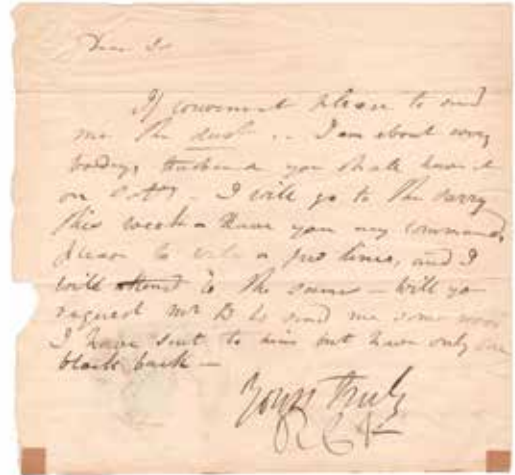 Dear Sir
If convenient please to send
me the dust .. I am about
you shall have it
on . I will go to the
this week - Have you any commands
please to write a few lines, and I
will attend to the same - Will yo
request Mr B to send me some
I have sent to him but have only one
black back -
Yours truly